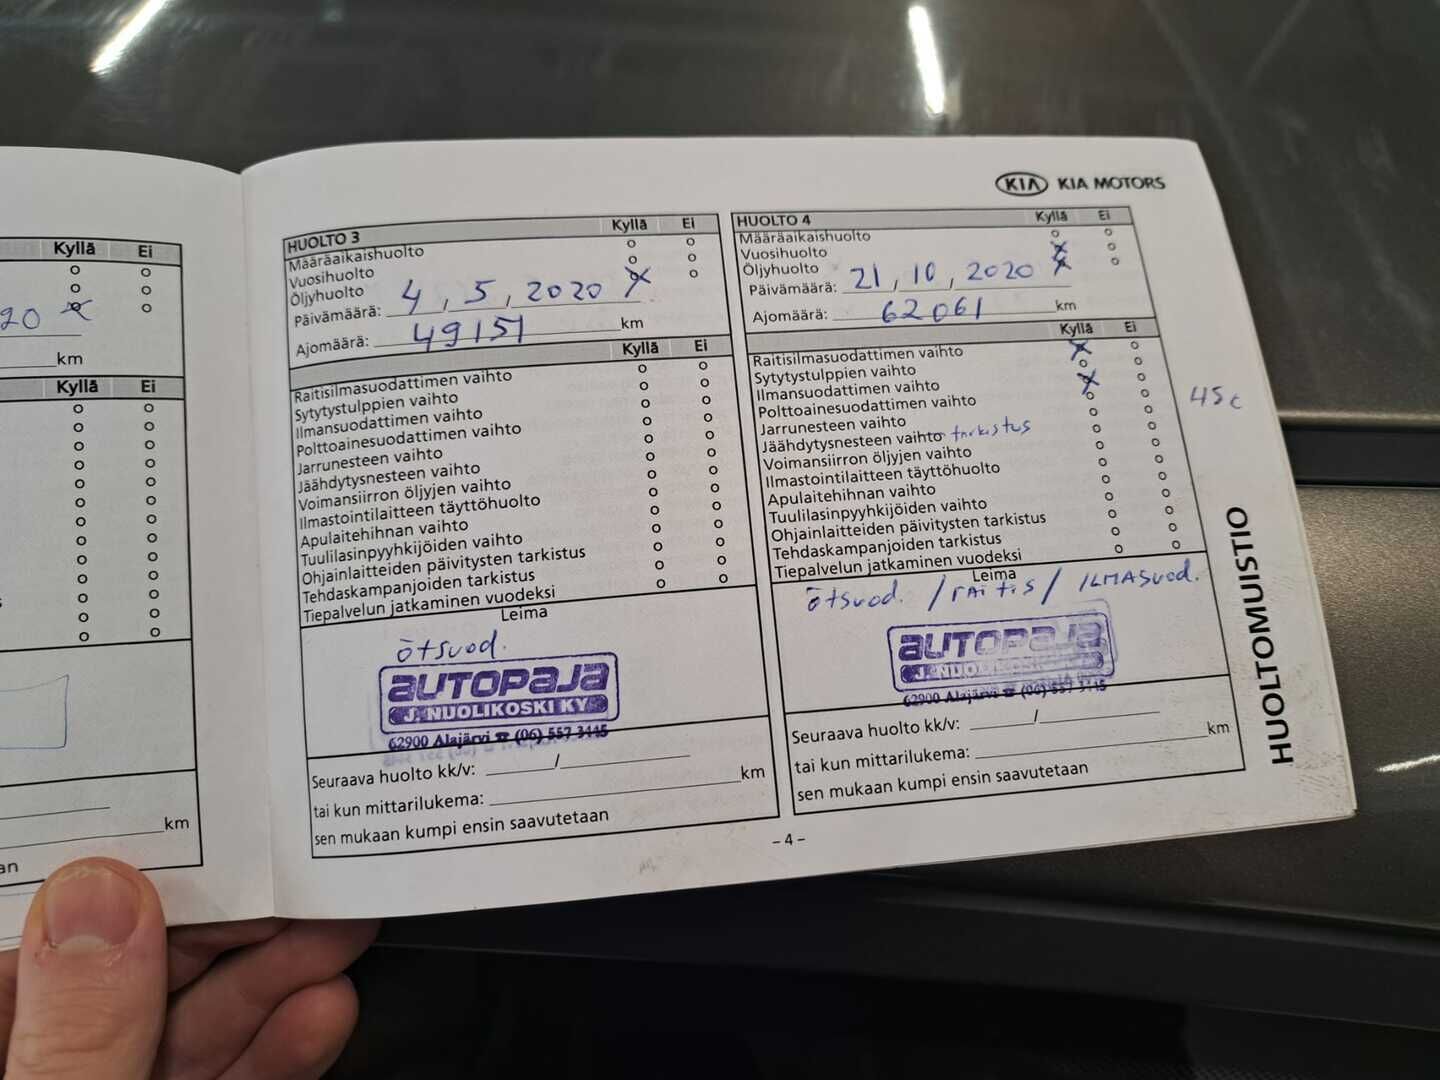 Kyllä Ei
20
km
Kyllä Ei
km
an
KIA KIA MOTORS
HUOLTO 3 Kyllä Ei
Määräaikaishuolto
Vuosihuolto
Öljyhuolto
Päivämäärä: 4, 5, 2020
Ajomäärä: 49151 km
Kyllä Ei
Raitisilmasuodattimen vaihto
Sytytystulppien vaihto
Ilmansuodattimen vaihto
Polttoainesuodattimen vaihto
Jarrunesteen vaihto
Jäähdytysnesteen vaihto
Voimansiirron öljyjen vaihto
Ilmastointilaitteen täyttöhuolto
Apulaitehihnan vaihto
Tuulilasinpyyhkijöiden vaihto
Ohjainlaitteiden päivitysten tarkistus
Tehdaskampanjoiden tarkistus
Tiepalvelun jatkaminen vuodeksi
Leima
ötsuod.
AUTOPAJA
J. NUOLIKOSKI KY
62900 Alajärvi ☎ (06) 557 3445
Seuraava huolto kk/v: /
tai kun mittarilukema: km
sen mukaan kumpi ensin saavutetaan
HUOLTO 4 Kyllä Ei
Määräaikaishuolto
Vuosihuolto
Öljyhuolto
Päivämäärä: 21, 10, 2020
Ajomäärä: 62061 km
Kyllä Ei
Raitisilmasuodattimen vaihto
Sytytystulppien vaihto
Ilmansuodattimen vaihto
Polttoainesuodattimen vaihto
Jarrunesteen vaihto
Jäähdytysnesteen vaihto tarkistus
Voimansiirron öljyjen vaihto
Ilmastointilaitteen täyttöhuolto
Apulaitehihnan vaihto
Tuulilasinpyyhkijöiden vaihto
Ohjainlaitteiden päivitysten tarkistus
Tehdaskampanjoiden tarkistus
Tiepalvelun jatkaminen vuodeksi
Leima
ötsuod. / RAITIS / ILMASUOD.
AUTOPAJA
J. NUOLIKOSKI
62900 Alajärvi ☎ (06) 557 3445
Seuraava huolto kk/v: /
tai kun mittarilukema: km
sen mukaan kumpi ensin saavutetaan
45c
HUOLTOMUISTIO
– 4 –